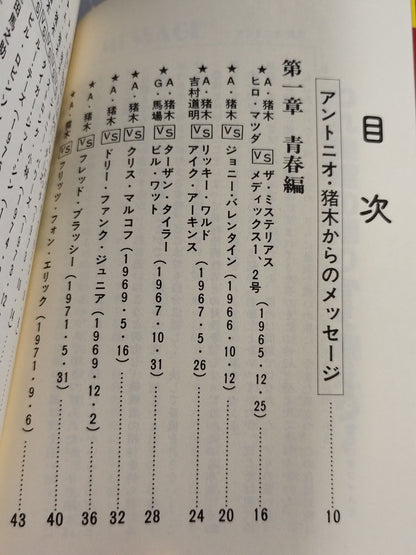 目次
アントニオ・猪木からのメッセージ 10
第一章 青春編
★A・猪木 ヒロ・マツダ VS ザ・ミステリアス メディックス1、2号 (1965・12・25) 16
★A・猪木 VS ジョニー・バレンタイン (1966・10・12) 20
★A・猪木 吉村道明 VS リッキー・ワルド アイク・アーキンス (1967・5・26) 24
★A・猪木 G・馬場 VS ターザン・タイラー ビル・ワット (1967・10・31) 28
★A・猪木 VS クリス・マルコフ (1969・5・16) 32
★A・猪木 VS ドリー・ファンク・ジュニア (1969・12・2) 36
★A・猪木 VS フレッド・ブラッシー (1971・5・31) 40
★A・猪木 VS フリッツ・フォン・エリック (1971・9・6) 43